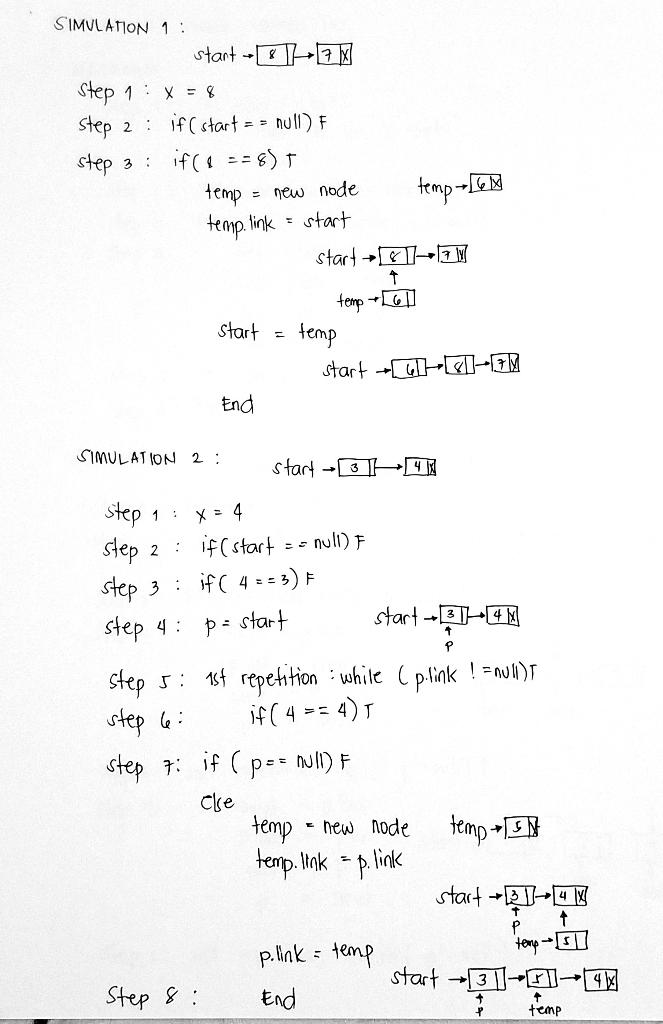 SIMULATION 1 :
start → 8 → 7 X
Step 1 : x = 8
Step 2 : if(start == null) F
Step 3 : if(8 == 8) T
temp = new node temp → 6 X
temp.link = start
start → 8 → 7 X
↑
temp → 6
start = temp
start → 6 → 8 → 7 X
End
SIMULATION 2 : start → 3 → 4 X
Step 1 : x = 4
Step 2 : if(start == null) F
Step 3 : if( 4 == 3) F
Step 4 : p = start start → 3 → 4 X
↑
p
Step 5 : 1st repetition : while ( p.link != null) T
Step 6 : if( 4 == 4) T
Step 7: if ( p == null) F
Else
temp = new node temp → 5 X
temp.link = p.link
start → 3 → 4 X
↑ ↑
p temp → 5
p.link = temp
start → 3 → 5 → 4 X
Step 8 : End ↑ ↑
p temp